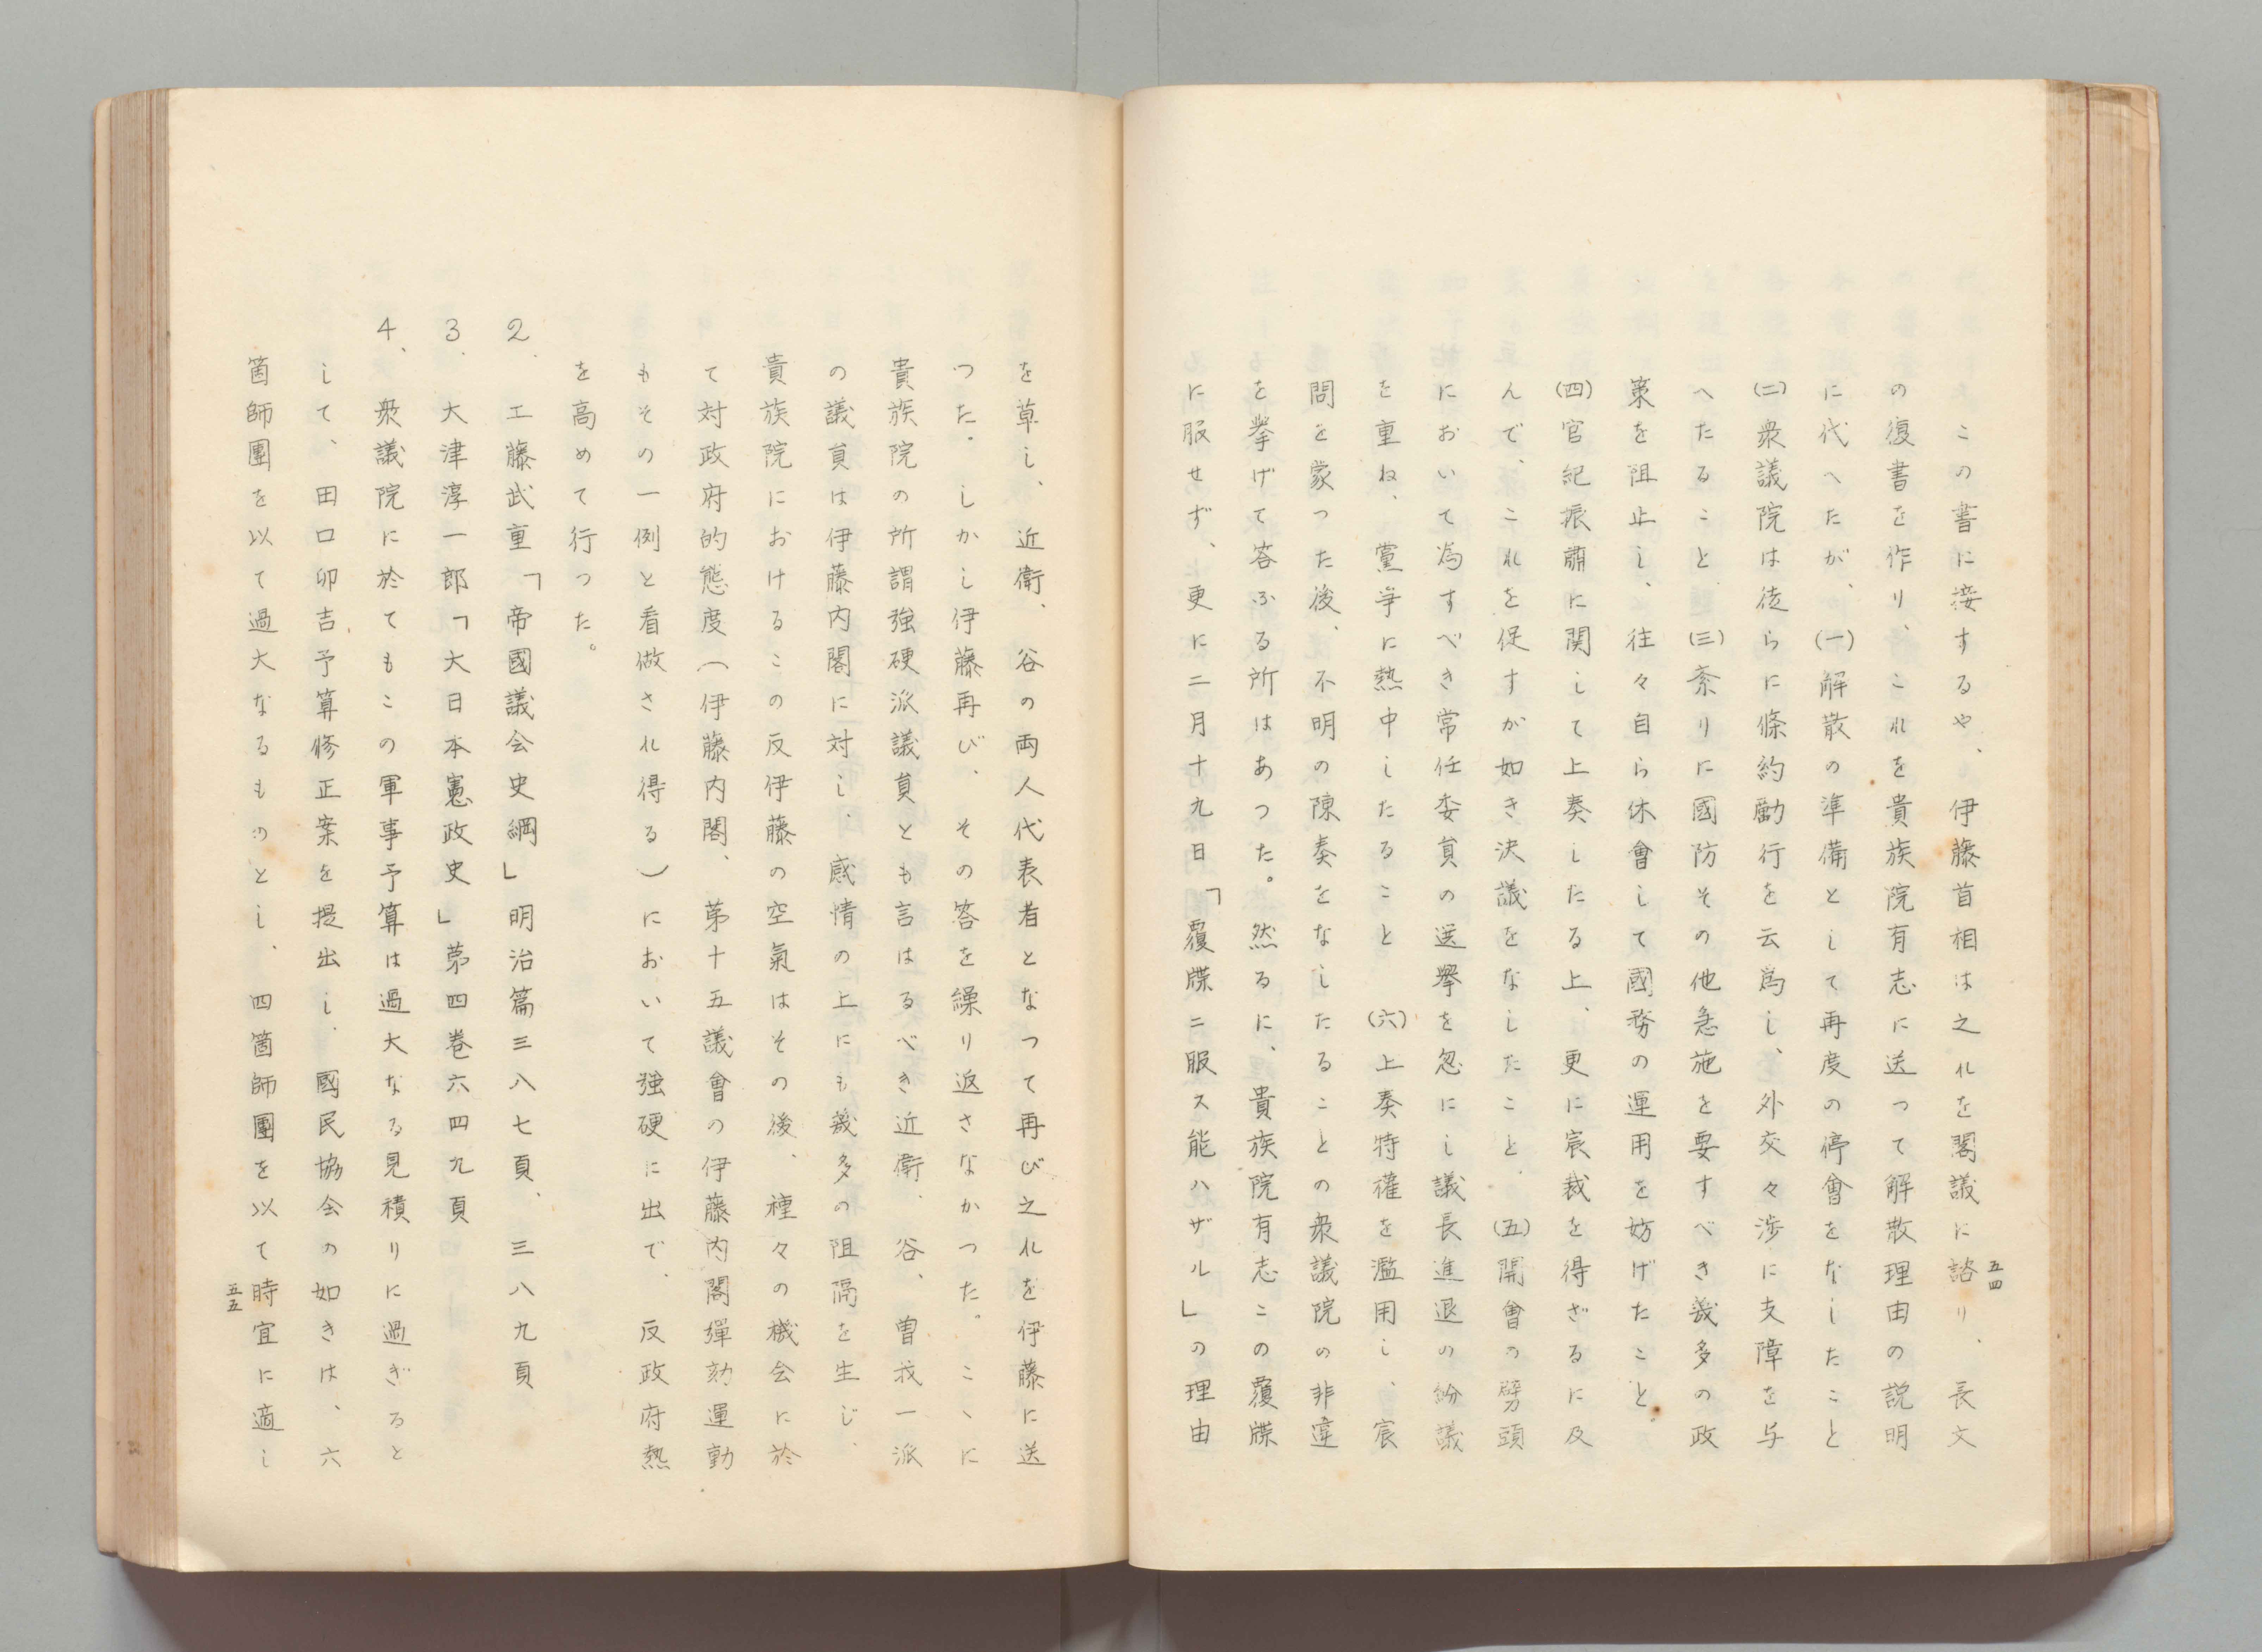 この書に接するや、伊藤首相は之れを閣議に諮り、長文
の復書を作り、これを貴族院有志に送つて解散理由の説明
に代へたが、(一)解散の準備として再度の停會をなしたこと
(二)衆議院は徒らに條約勵行を云爲し、外交々渉に支障を与
へたること、(三)紊りに國防その他急施を要すべき幾多の政
策を阻止し、往々自ら休會して國務の運用を妨げたこと、
(四)官紀振肅に関して上奏したる上、更に宸裁を得ざるに及
んで、これを促すが如き決議をなしたこと、(五)開會の劈頭
において爲すべき常任委員の選擧を忽にし議長進退の紛議
を重ね、黨爭に熱中したること (六)上奏特權を濫用し、宸
問を蒙つた後、不明の陳奏をなしたることの衆議院の非違
を擧げて答ふる所はあつた。然るに、貴族院有志この覆牒
に服せず、更に二月十九日「覆牒ニ服ス能ハザル」の理由
五四
を草し、近衛、谷の両人代表者となつて再び之れを伊藤に送
つた。しかし伊藤再び、その答を繰り返さなかつた。こゝに
貴族院の所謂強硬派議員とも言はるべき近衛、谷、曽我一派
の議員は伊藤内閣に対し、感情の上にも幾多の阻隔を生じ、
貴族院におけるこの反伊藤の空氣はその後、種々の機会に於
て対政府的態度(伊藤内閣、第十五議會の伊藤内閣彈劾運動
もその一例と看做され得る)において強硬に出で、反政府熱
を高めて行つた。
2、工藤武重「帝國議会史綱」明治篇三八七頁、三八九頁
3、大津淳一郎「大日本憲政史」第四巻六四九頁
4、衆議院に於てもこの軍事予算は過大なる見積りに過ぎると
して、田口卯吉予算修正案を提出し、國民協会の如きは、六
箇師團を以て過大なるものとし、四箇師團を以て時宜に適し
五五